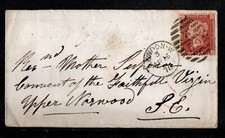 Revnd Mother Superior
Convent of the Faithfull Virgin
Upper Norwood
S.E.
LONDON-W